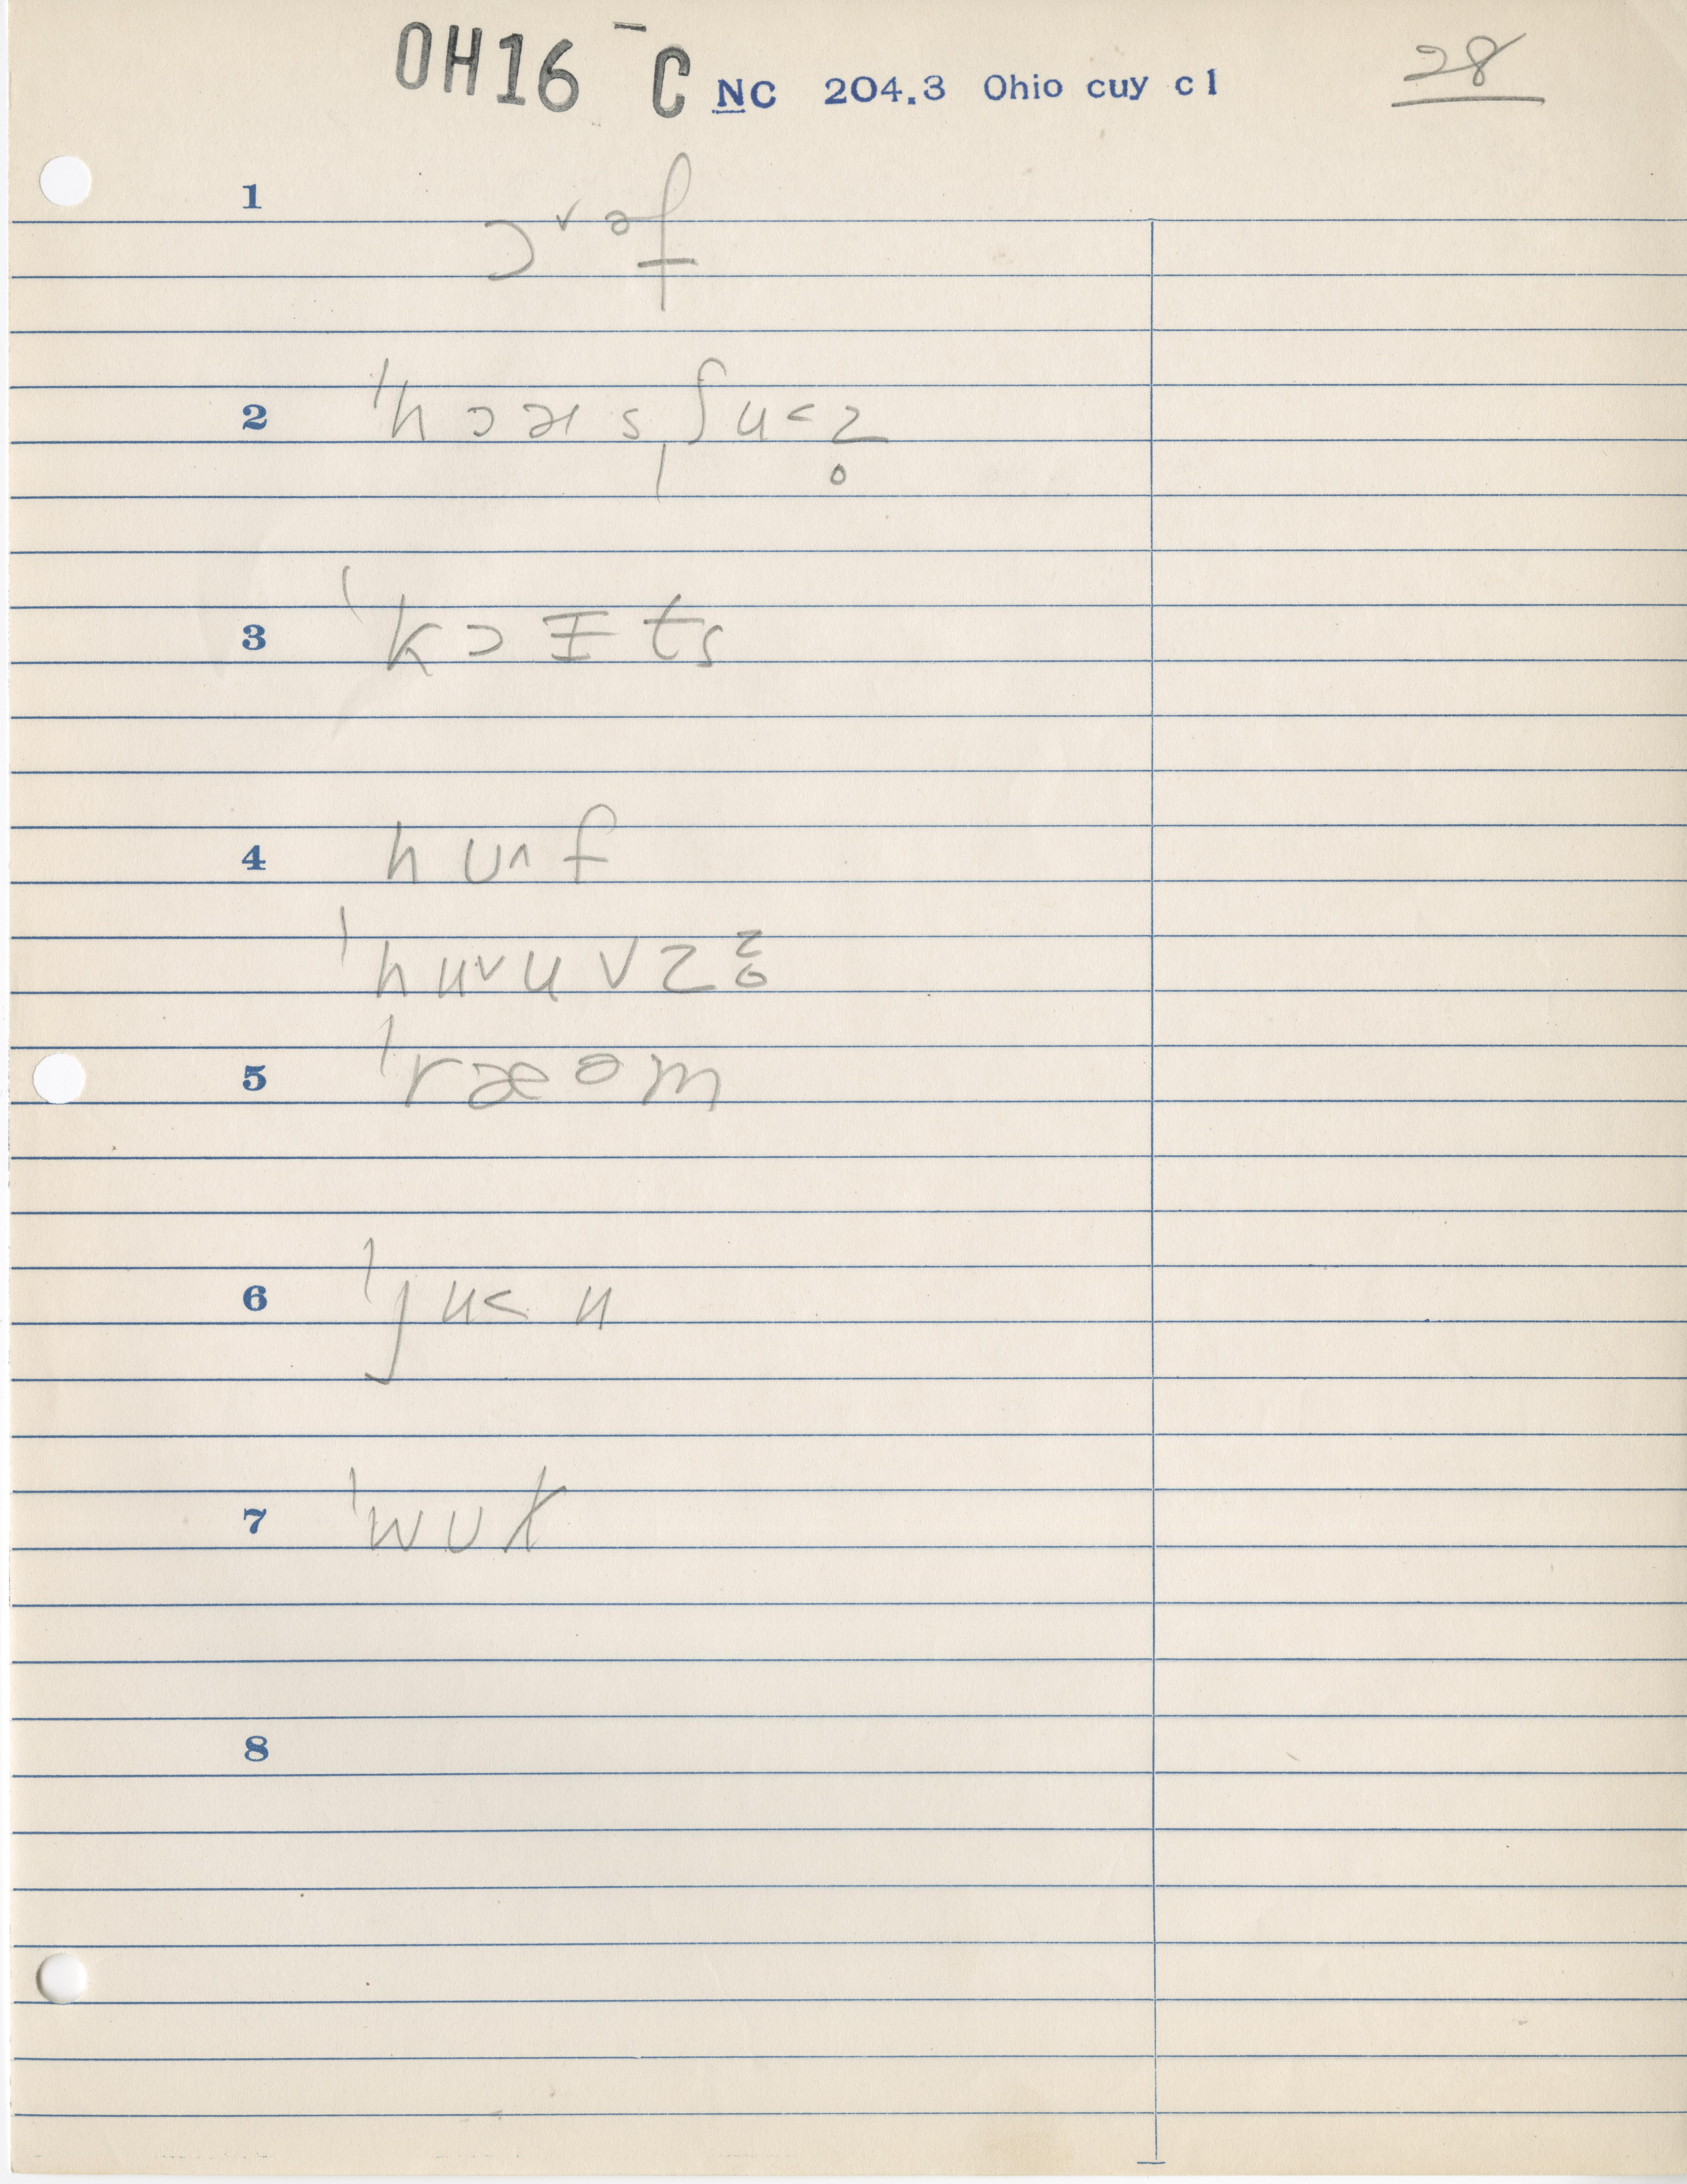 OH16 - C NC 204.3 Ohio cuy c1 28
1 ɔ˅əf
2 ˈhɔəɪsˌʃu˂z̥
3 ˈkɔɪts
4 hʊ˄f
ˈhu˅uvzz̥
5 ˈræəm
6 ˈju˂u
7 ˈwʊk
8